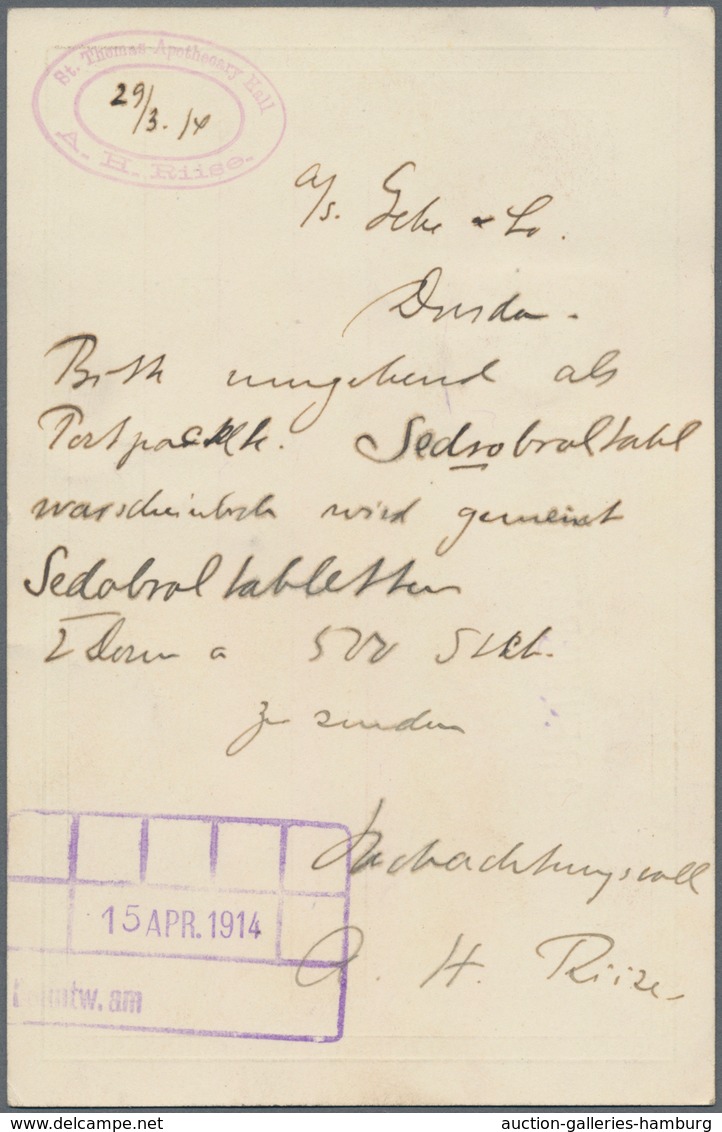 St. Thomas Apothecary Hall
29/3. 14
A. H. Riise.
a/s. Gehe & Co.
Dresden.
Bitte umgehend als
Postpackete. Sedsobroltabl
warscheinlich wird gemeint
Sedobrol tabletten
I Dosen a 500 Stck.
zu senden
Hochachtungsvoll
A. H. Riise.
15 APR. 1914
Beantw. am
auction-galleries-hamburg